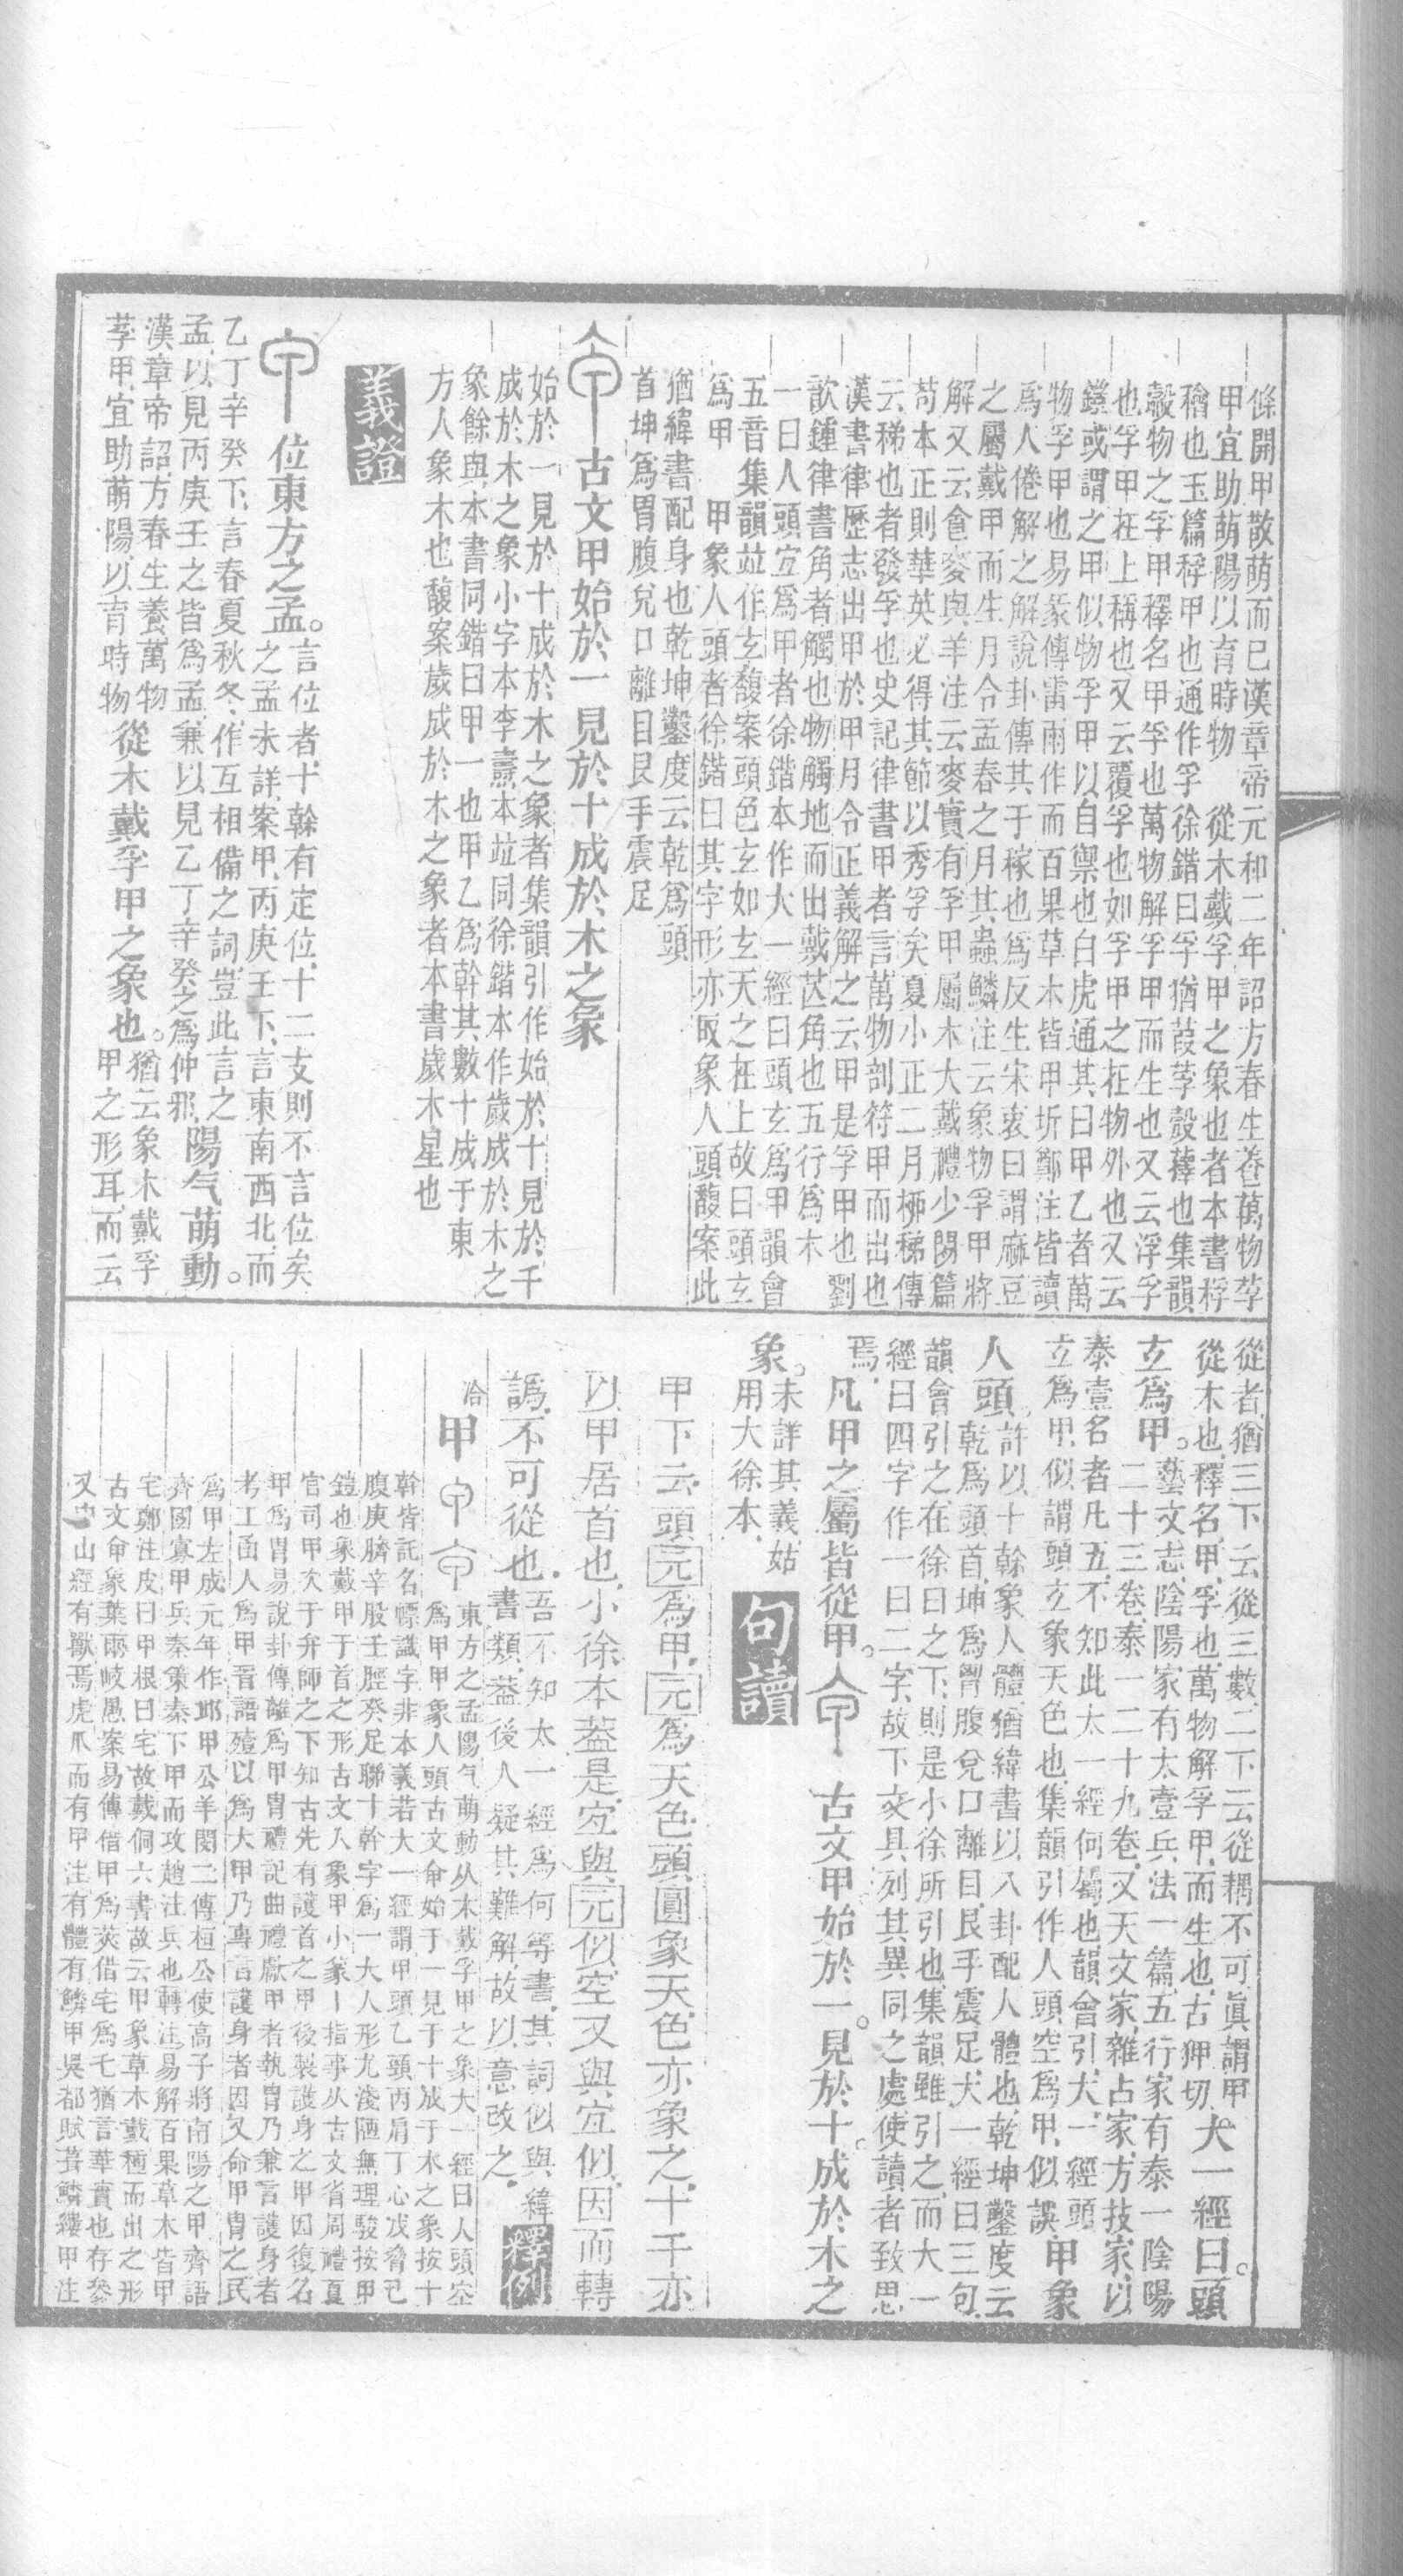 條開甲散萌而已漢章帝元和二年詔方春生養萬物莩
甲宜助萌陽以育時物　從木戴孚甲之象也者本書稃
穭也玉篇稃甲也通作孚徐鍇曰孚猶葭莩殼薜也集韻
轂物之孚甲釋名甲孚也萬物解孚甲而生也又云浮孚
也孚甲在上稱也又云覆孚也如孚甲之在物外也又云
鎧或謂之甲似物孚甲以自禦也白虎通其曰甲乙者萬
物孚甲也易彖傳雷雨作而百果草木皆甲坼鄭注皆讀
爲人倦解之解說卦傳其于稼也爲反生宋衷曰謂麻豆
之屬戴甲而生月令孟春之月其蟲鱗注云象物孚甲將
解又云食麥與羊注云麥實有孚甲屬木大戴禮少閒篇
苟本正則華英必得其節以秀孚矣夏小正二月栁稊傳
云稊也者發孚也史記律書甲者言萬物剖符甲而出也
漢書律歷志出甲於甲月令正義解之云甲是孚甲也劉
歆鍾律書角者觸也物觸地而出戴芒角也五行爲木
一曰人頭宜爲甲者徐鍇本作大一經曰頭玄爲甲韻會
五音集韻竝作玄馥案頭色玄如玄天之在上故曰頭玄
爲甲　甲象人頭者徐鍇曰其字形亦取象人頭馥案此
猶緯書配身也乾坤鑿度云乾爲頭
首坤爲胃腹兌口離目艮手震足
古文甲始於一見於十成於木之象
始於一見於十成於木之象者集韻引作始於十見於千
成於木之象小字本李燾本竝同徐鍇本作歲成於木之
象餘與本書同鍇曰甲一也甲乙爲幹其數十成于東
方人象木也馥案歲成於木之象者本書歲木星也
義證
位東方之孟。言位者十榦有定位十二支則不言位矣
之孟未詳案甲丙庚壬下言東南西北而
乙丁辛癸下言春夏秋冬作互相備之詞豈此言之
孟以見丙庚壬之皆爲孟兼以見乙丁辛癸之爲仲邪陽气萌動。
漢章帝詔方春生養萬物
莩甲宜助萌陽以育時物從木戴孚甲之象也。猶云象木戴孚
甲之形耳而云
從者猶三下云從三數二下云從耦不可眞謂甲
從木也釋名甲孚也萬物解孚甲而生也古狎切大一經曰。頭
玄爲甲。藝文志陰陽家有太壹兵法一篇五行家有泰一陰陽
二十三卷泰一二十九卷又天文家雜占家方技家以
泰壹名者凡五不知此太一經何屬也韻會引大一經頭
玄爲甲似謂頭玄象天色也集韻引作人頭空爲甲似誤甲象
人頭。許以十榦象人體猶緯書以八卦配人體也乾坤鑿度云
乾爲頭首坤爲胃腹兌口離目艮手震足大一經曰三句
韻會引之在徐曰之下則是小徐所引也集韻雖引之而大一
經曰四字作一曰二字故下文具列其異同之處使讀者致思
焉凡甲之屬皆從甲。古文甲始於一。見於十。成於木之
象。未詳其義姑
用大徐本
句讀
甲下云頭元爲甲元爲天色頭圓象天色亦象之十干亦
以甲居首也小徐本蓋是宜與元似空又與宜似因而轉
譌不可從也吾不知太一經爲何等書其詞似與緯
書類蓋後人疑其難解故以意改之
釋例
洽甲
東方之孟陽气萌動从木戴孚甲之象大一經曰人頭空
爲甲甲象人頭古文命始于一見于十成于木之象按十
幹皆託名幖識字非本義若大一經謂甲頭乙頸丙肩丁心戊脅己
腹庚臍辛股壬脛癸足聯十幹字爲一大人形尤淺陋無理駿按甲
鎧也象戴甲于首之形古文人象甲小篆丨指事从古文省周禮夏
官司甲次于弁師之下知古先有護首之甲後製護身之甲因復名
甲爲冑易說卦傳離爲甲冑禮記曲禮獻甲者執冑乃兼言護身者
考工函人爲甲晉語殪以爲大甲乃專言護身者因又命甲冑之民
爲甲左成元年作邱甲公羊閔二傳桓公使高子將南陽之甲齊語
齊國寡甲兵秦策秦下甲而攻趙注兵也轉注易解百果草木皆甲
宅鄭注皮曰甲根曰宅故戴侗六書故云甲象草木戴種而出之形
古文命象葉兩岐愚案易傳借甲爲莢借宅爲乇猶言華實也存參
又中山經有獸焉虎爪而有甲注有體有鱗甲吳都賦葺鱗縷甲注